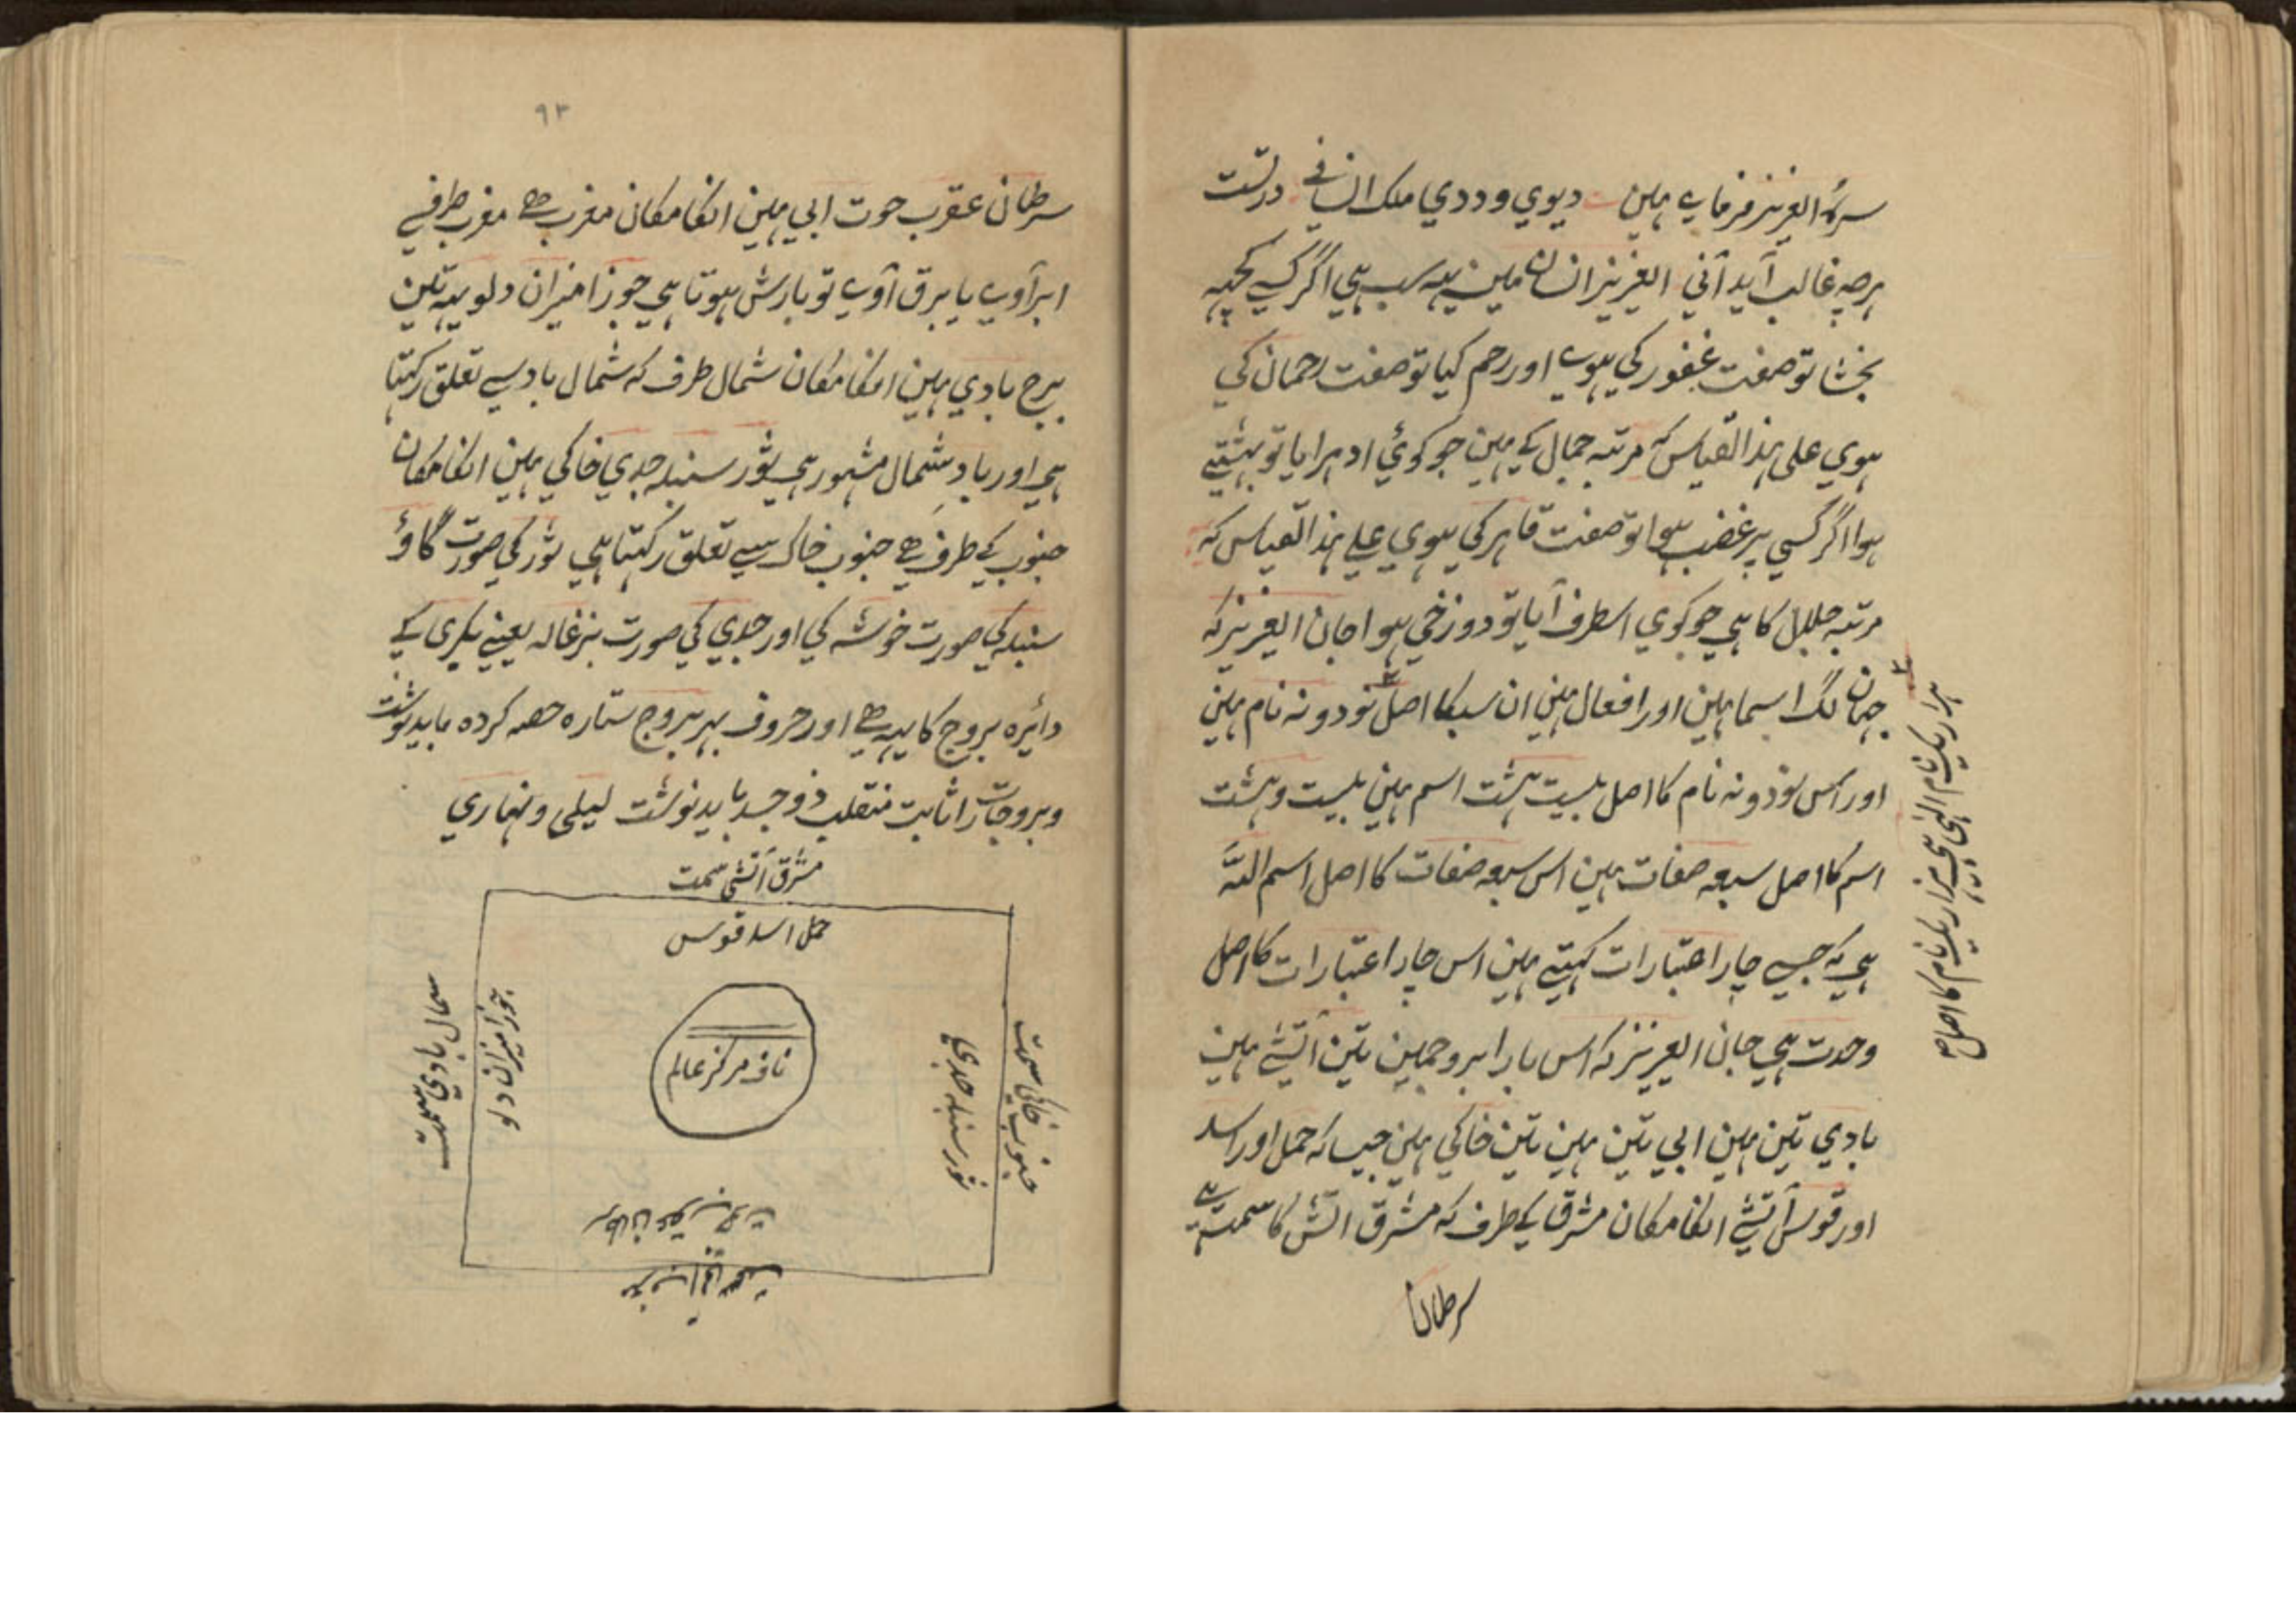 سرہ العزیز فرماے ہین دیوی و ددی ملک انسانے درتست
ہرچہ غالب آید آنی العزیز انسان مین یہہ سب ہی اگر کسے کچہہ
بخشا تو صفت غفور کی ہوے اور رحم کیا تو صفت رحمان کی
ہوی علی ہذالقیاس کہ مرتبہ جمال کے ہین جو کوئی ادہر ایا تو بہشتے
ہوا اگر کسی پر غضب ہوا تو صفت قاہر کی ہوی علے ہذالقیاس کہ
مرتبہ جلال کا ہی جو کوی اسطرف آیا تو دوزخی ہوا جان العزیز کہ
جہان لگ اسما ہین اور افعال ہین ان سبکا اصل نودونہ نام ہین
اور اس نودونہ نام کا اصل بیست ہشت اسم ہین بیست وہشت
اسم کا اصل سبعہ صفات ہین اس سبعہ صفات کا اصل اسم اللہ
ہی کہ جسے چار اعتبارات کہتے ہین اس چار اعتبارات کا اصل
وحدت ہی جان العزیز کہ اس بارا بروجمین تین آتشے ہین
بادی تین ہین ابی تین ہین تین خاکی ہین جیسا کہ حمل اور اسد
اور قوس آتشے انکا مکان مشرق کے طرف کہ مشرق اتش کا سمت ہے
سرطان
ہزار یک نام الہی ہی ہزار یک نام کا اصل
۹۳
سرطان عقرب حوت ابی ہین انکا مکان مغرب ہے مغرب طرفسے
ابر آوے یا برق آوے تو بارش ہوتا ہی جوزا میزان دلو یہہ تین
برج بادی ہین انکا مکان شمال طرف کہ شمال باد سے تعلق رکہتا
ہی اور بادِ شمال مشہور ہی ثور سنبلہ جدی خاکی ہین انکا مکان
جنوب کے طرف ہے جنوب خاک سے تعلق رکہتا ہی ثور کی صورت گاؤ
سنبلہ کی صورت خوشہ کی اور جدی کی صورت بزغالہ یعنے بکری کے
دائرہ بروج کا یہہ ہے اور حروف بہر بروج ستارہ حصہ کردہ باید نوشت
وبروجات را ثابت منقلب ذوجسد باید نوشت لیلی و نہاری
مشرق آتشی سمت
حمل اسد قوس
جنوب خاکی سمت
ثور سنبلہ جدی
ناف مرکز عالم
جوزا میزان دلو
شمال بادی سمت
سرطان عقرب حوت
مغرب آبی سمت